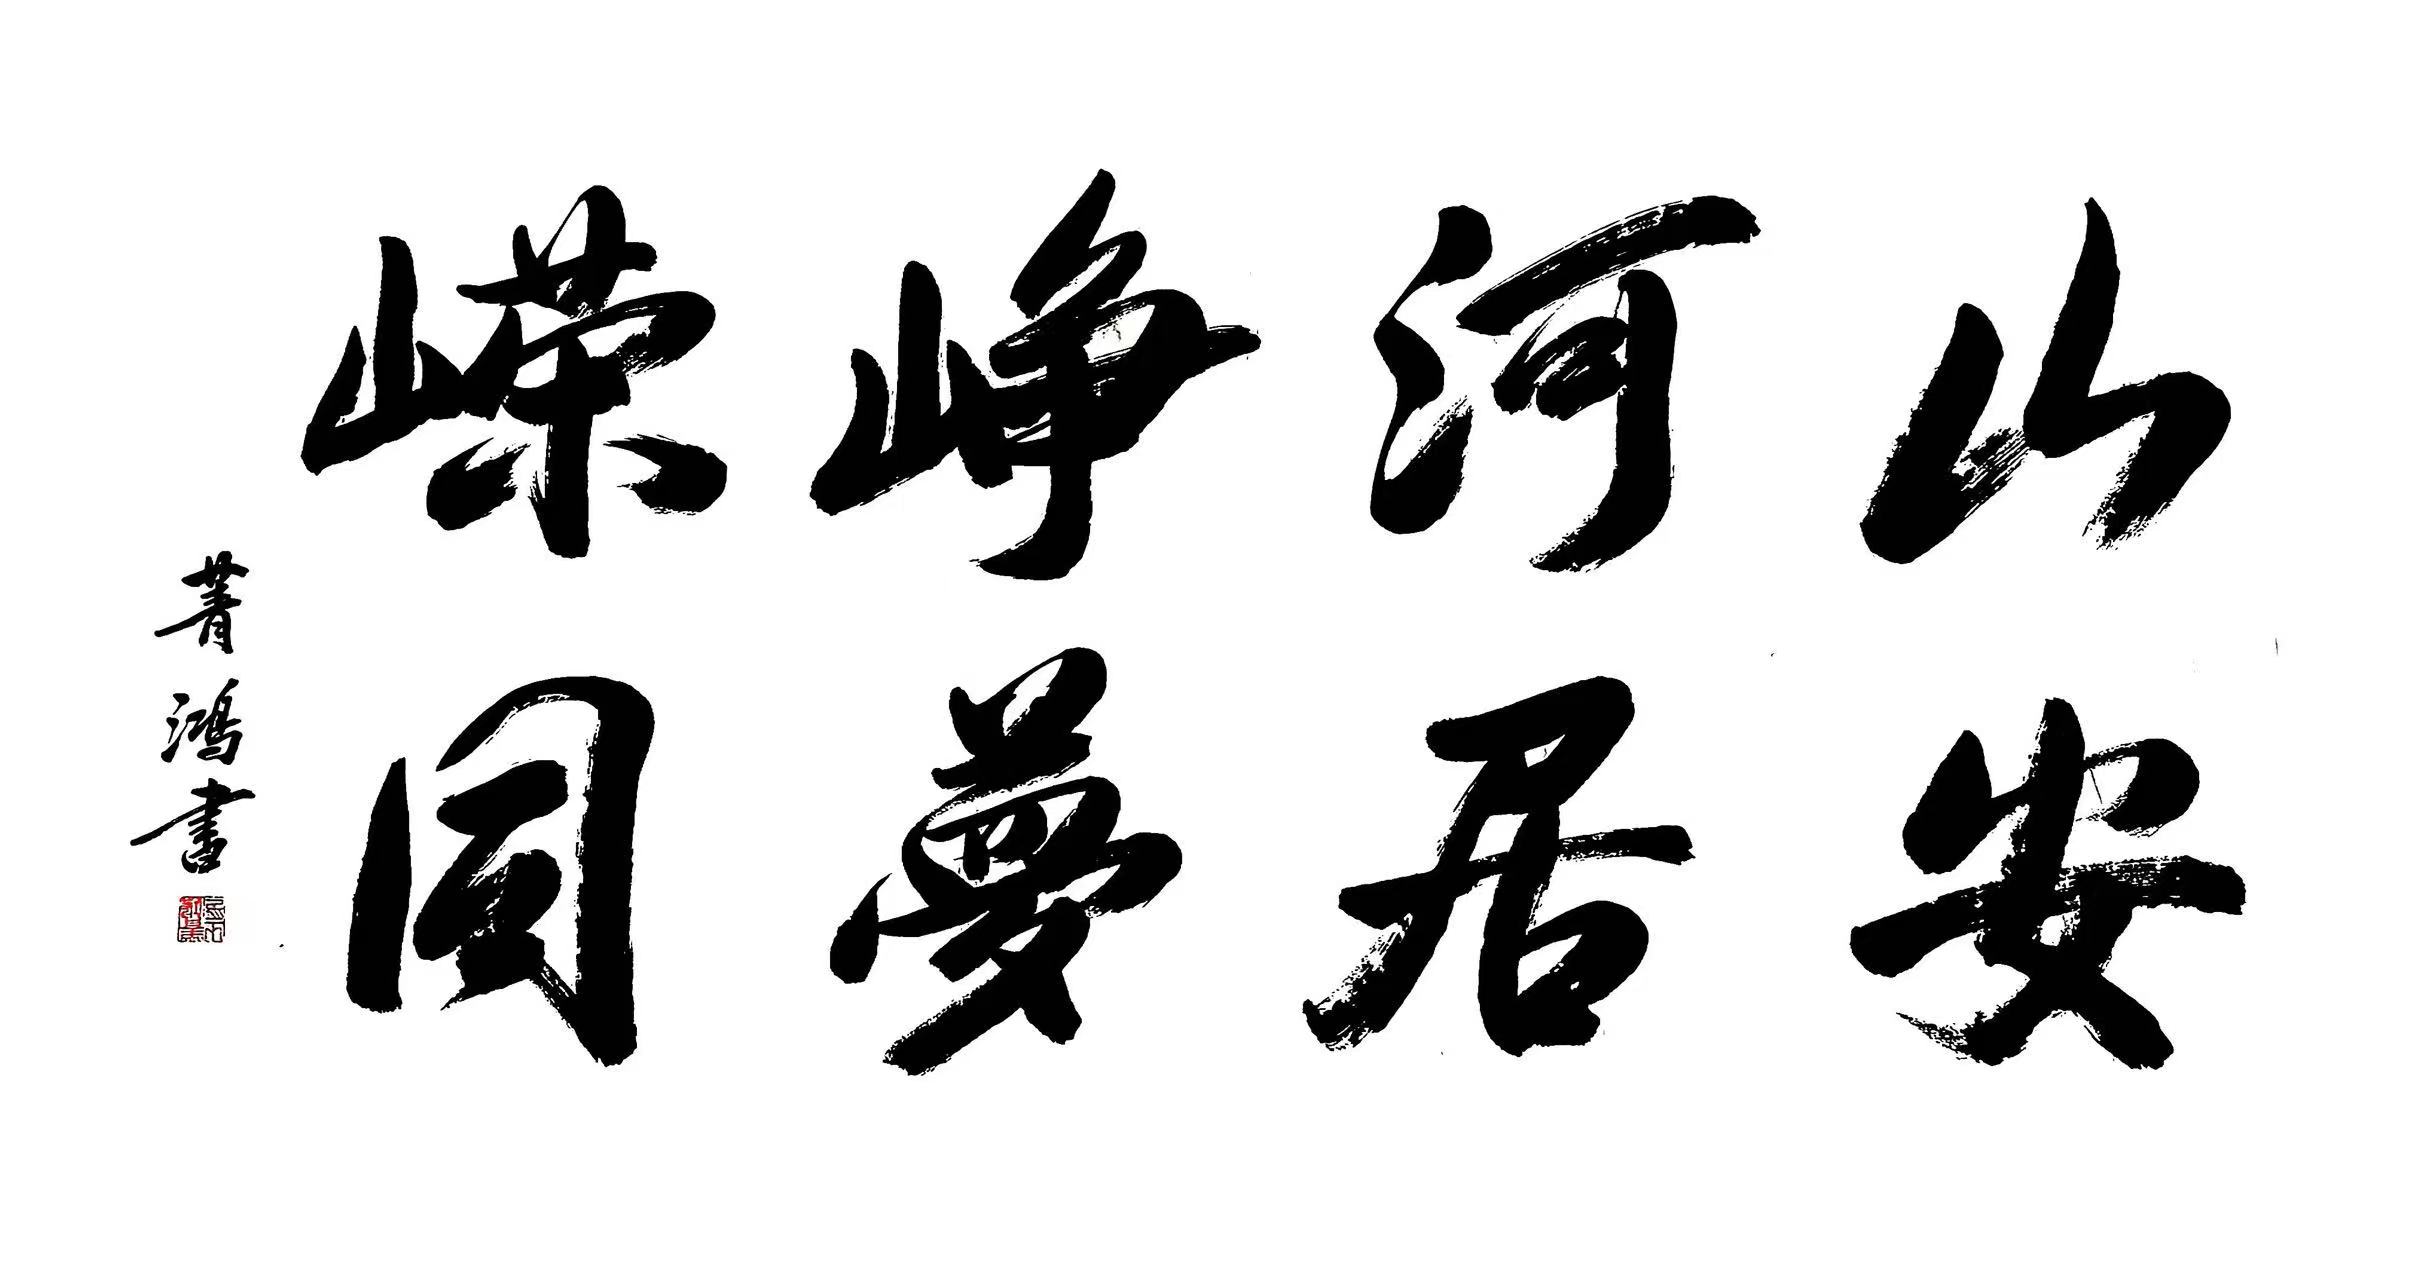 山河峥嵘
安居夢同
菁鸿書